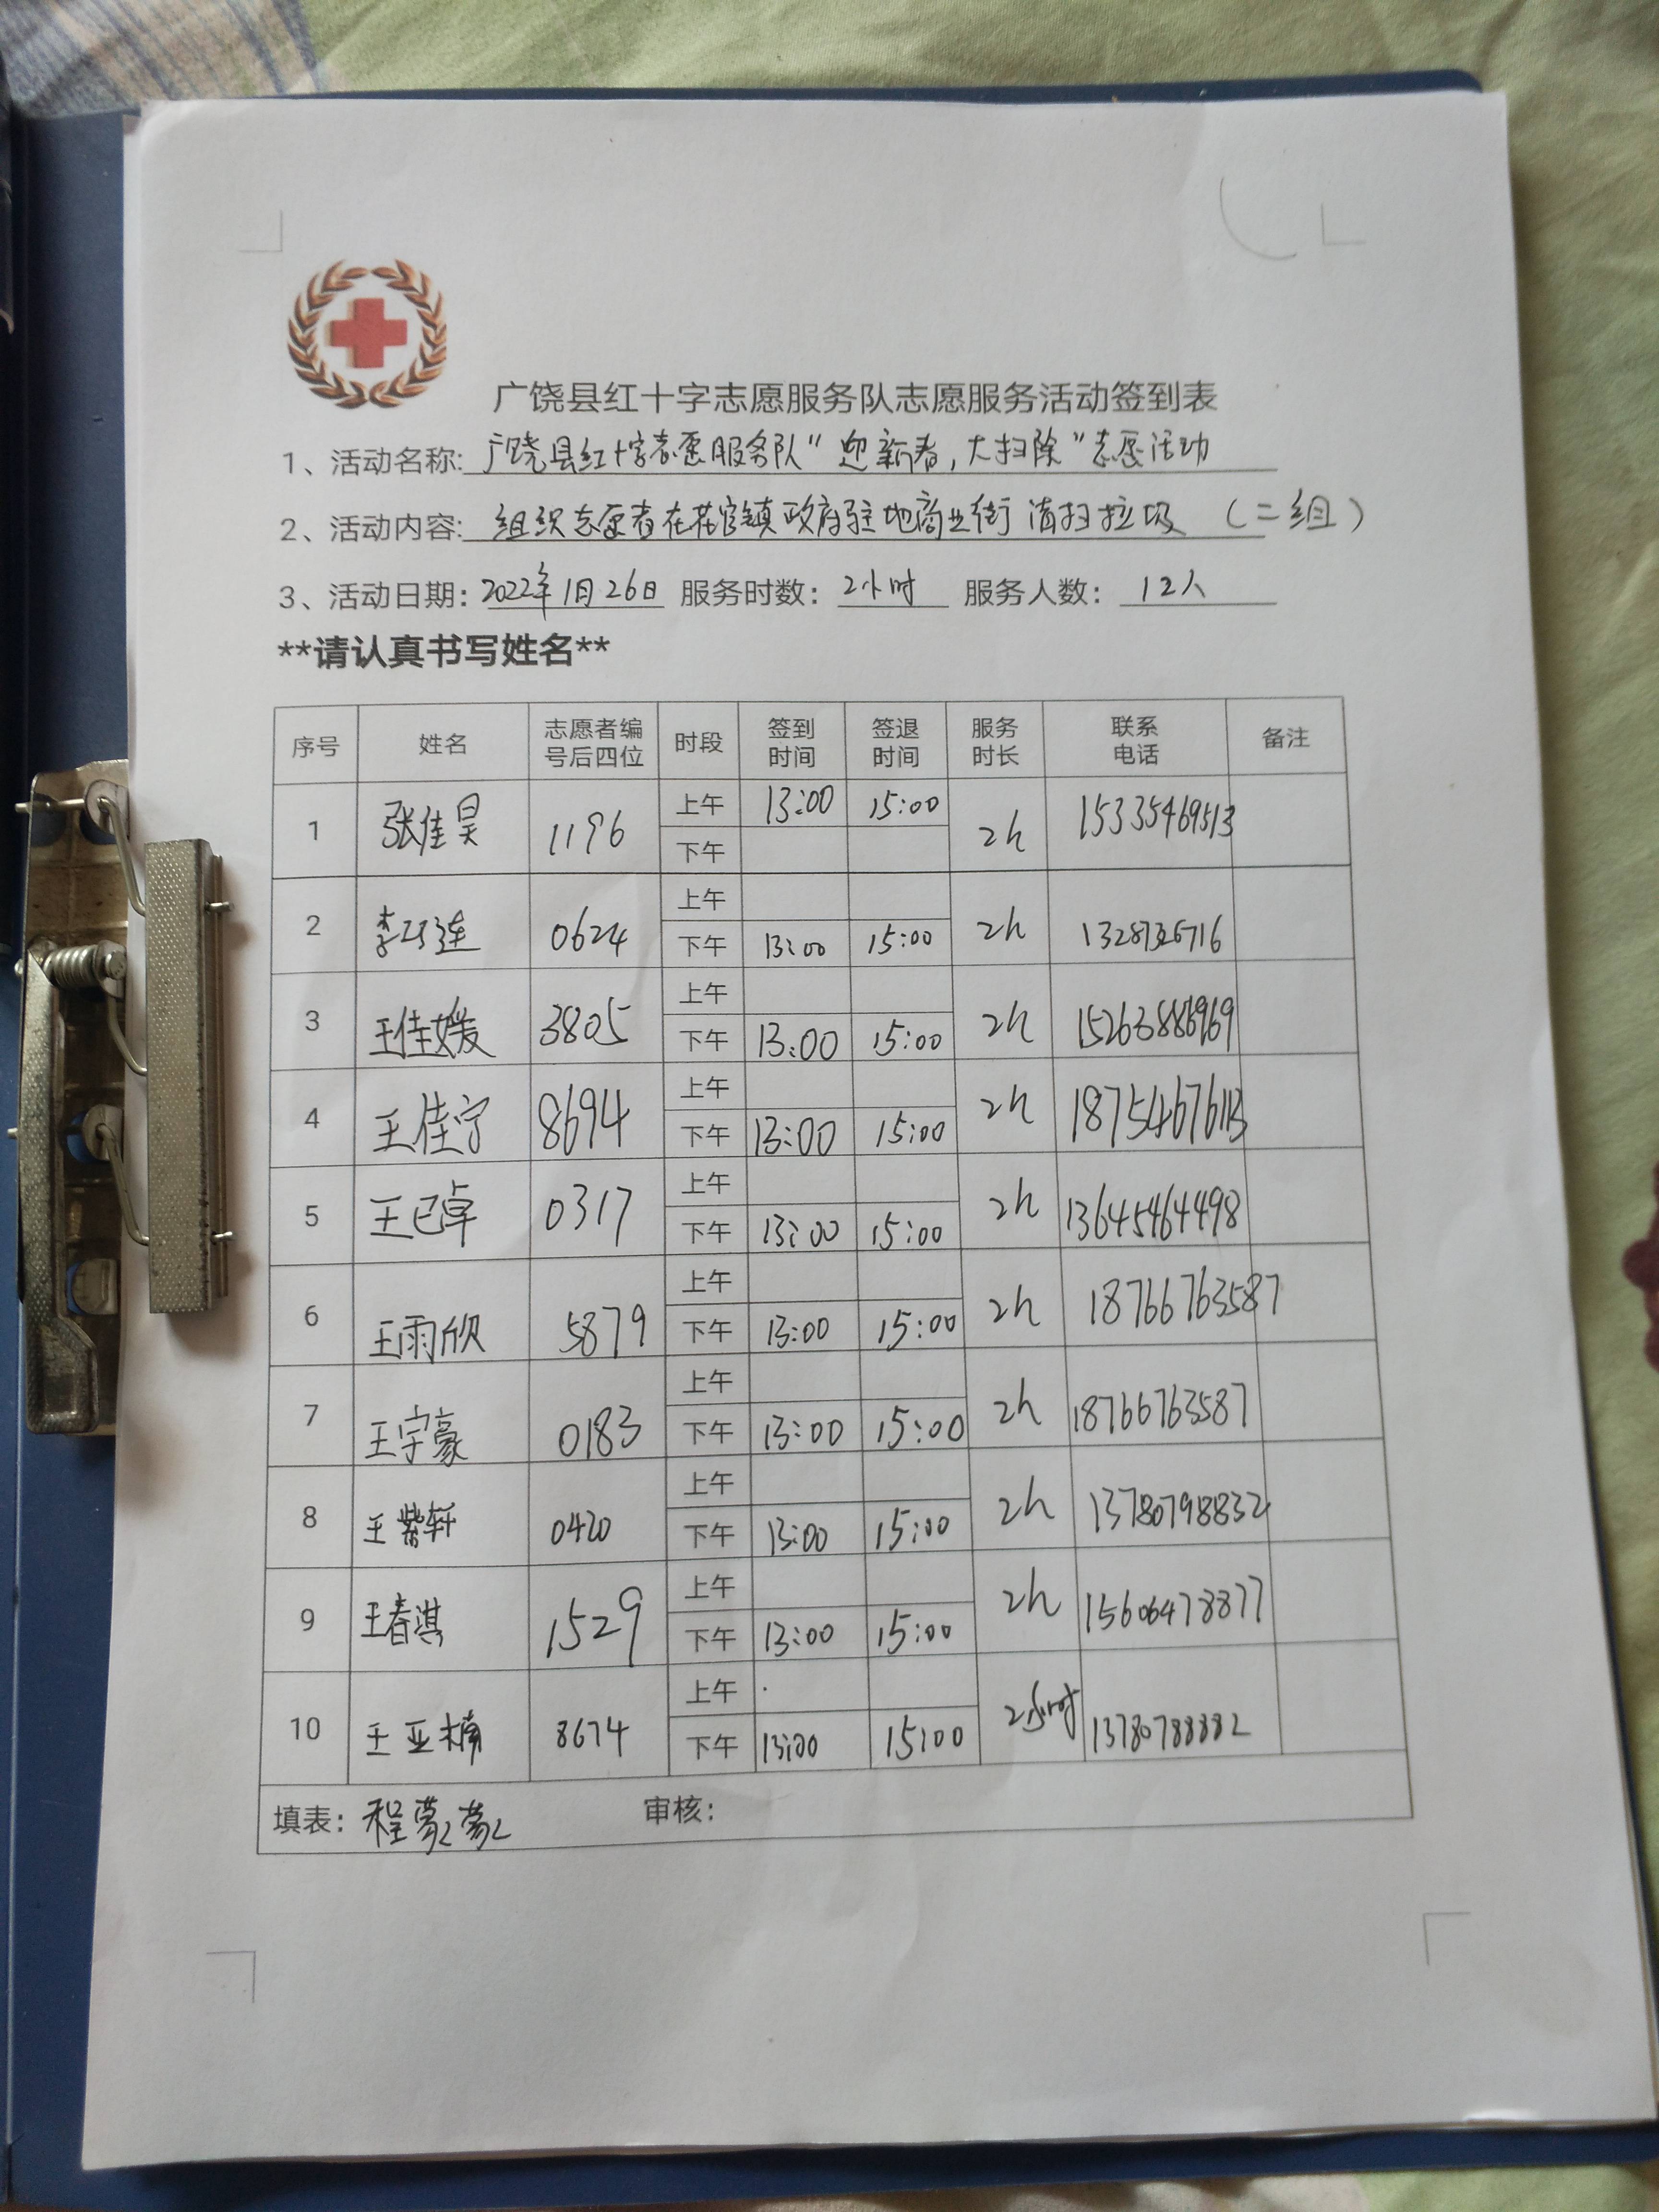 广饶县红十字志愿服务队志愿服务活动签到表
1、活动名称: 广饶县红十字志愿服务队"迎新春,大扫除"志愿活动
2、活动内容: 组织志愿者在花官镇政府驻地商业街清扫垃圾 (二组)
3、活动日期: 2022年1月26日 服务时数: 2小时 服务人数: 12人
**请认真书写姓名**
序号 姓名 志愿者编号后四位 时段 签到时间 签退时间 服务时长 联系电话 备注
1 张佳昊 1196 上午 13:00 15:00 2h 15335469513
下午
2 李巧连 0624 上午 2h
下午 13:00 15:00
3 王佳媛 3805 上午 2h 15263886969
下午 13:00 15:00
4 王佳宁 8694 上午 2h 18754676113
下午 13:00 15:00
5 王已卓 0317 上午 2h 13645464498
下午 13:00 15:00
6 王雨欣 5879 上午 2h 18766763587
下午 13:00 15:00
7 王宇豪 0183 上午 2h 18766763587
下午 13:00 15:00
8 王紫轩 0420 上午 2h 13780798832
下午 13:00 15:00
9 王春淇 1529 上午 2h 15606478877
下午 13:00 15:00
10 王亚楠 8674 上午 2小时 13780788882
下午 13:00 15:00
填表: 程梦梦 审核: